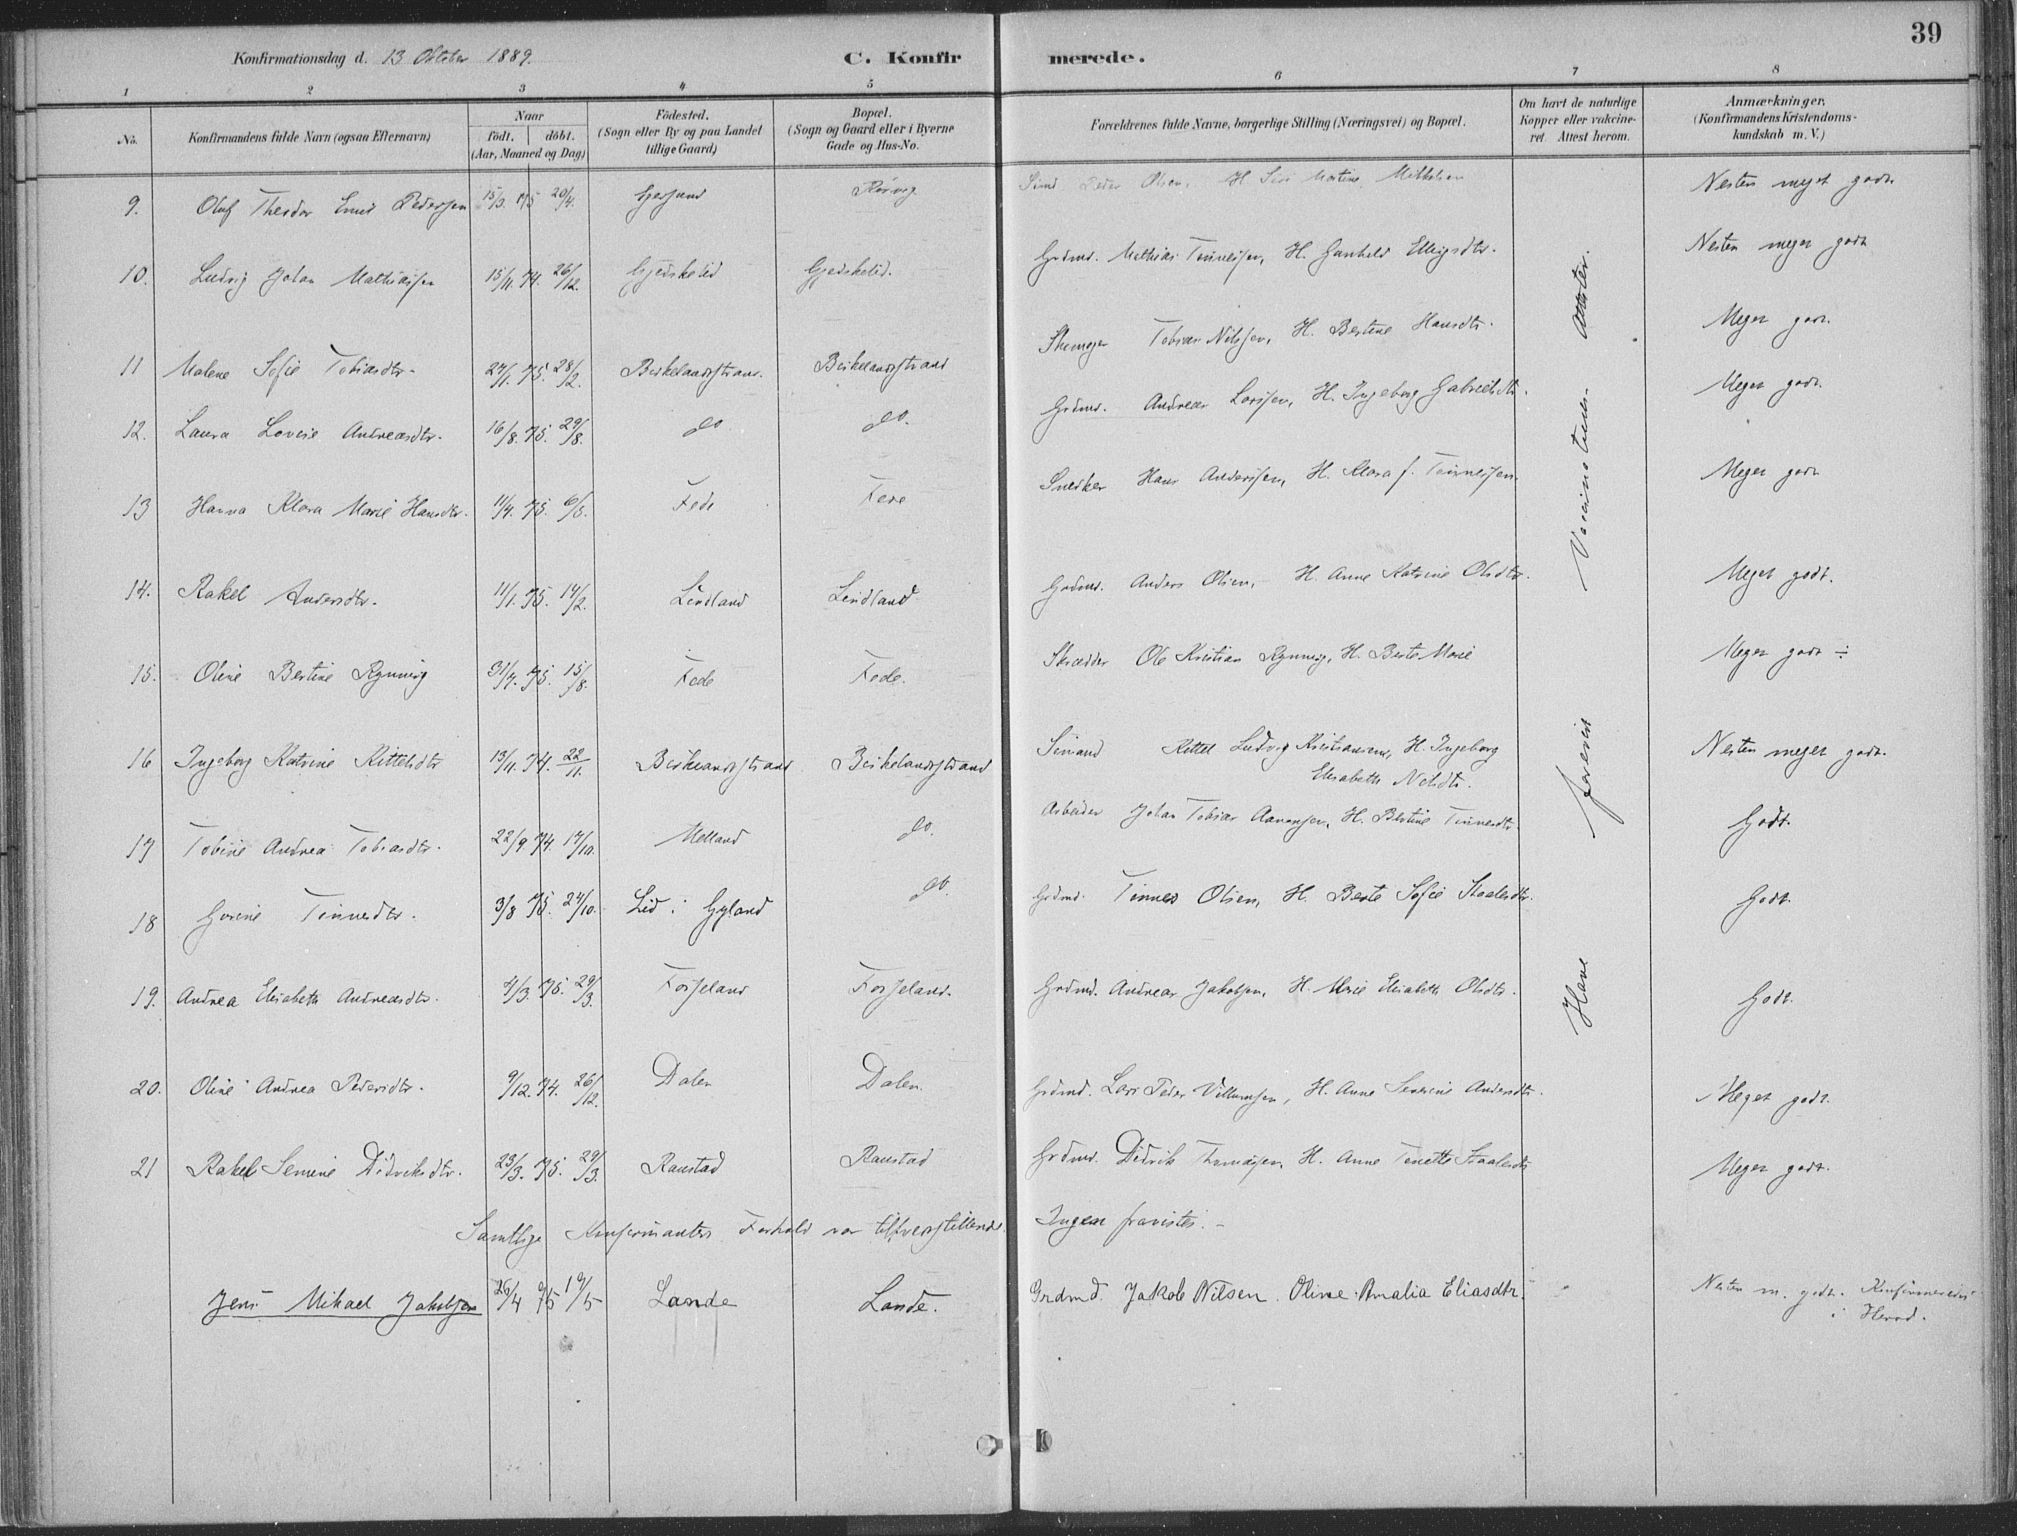 39
Konfirmationsdag d. 13 Oktober 1889.
C. Konfirmerede.
1 2 3 4 5 6 7 8
No.
Konfirmandens fulde Navn (ogsaa Efternavn)
Naar
født. døbt.
(Aar, Maaned og Dag)
Födested.
(Sogn eller By og paa Landet
tillige Gaard)
Bopæl.
(Sogn og Gaard eller i Byerne
Gade og Hus-No.
Forældrenes fulde Navne, borgerlige Stilling (Næringsvei) og Bopæl.
Om havt de naturlige
Kopper eller vakcine-
ret. Attest herom.
Anmærkninger.
(Konfirmandens Kristendoms-
kundskab m. V.)
9. Oluf Theodor Emil Pedersen 15/3. 75 20/4. Peder Olsen, H. Martine Mikkelsen Nesten meget godt
10. Ludvig Johan Mathiassen 15/11. 74. 26/12. Gjedskelid Gjedskelid. Grdmd. Mathias Tønnessen, H. Gunhild Ellingsdtr. Nesten meget godt
11 Malene Sofie Tobiasdtr. 27/1. 75. 28/2. Birkelandsstrand. Birkelandsstrand Tobias Nilssen, H. Bertine Hansdtr. Meget godt.
12. Laura Lovise Andreasdtr. 16/8. 75. 29/8. do. do. Grdmd. Andreas Larssen, H. Ingeborg Gabrielsdtr. Meget godt.
13 Hanna Klara Marie Hansdtr. 11/4. 75. 6/5. Fede Fede Snedker Hans Anderssen, H. Klara f. Tønnessen. Meget godt
14. Rakel Andersdtr. 11/1. 75. 14/2. Lindland Lindland Grdmd. Anders Olsen, H. Anne Katrine Olsdtr. Meget godt.
15. Oline Bertine Rynning 31/7. 75. 15/8. Fede Fede. Skrædder Ole Kristian Rynning, H. Berte Marie Meget godt ÷
16 Ingeborg Katrine Kittelsdtr 13/11. 74. 22/11. Birkelandsstrand Birkelandsstrand Sømand Kittel Ludvig Kristiansen, H. Ingeborg
Elisabeth Nilsdtr. Nesten meget godt.
17 Tobine Andrea Tobiasdtr. 22/9 74. 17/10. Melland do. Arbeider Johan Tobias Aanensen, H. Bertine Tønnesdtr. Godt.
18 Gurine Tønnesdtr. 3/8 75. 24/10. Lid i Gyland do. Grdmd. Tønnes Olsen, H. Berte Sofie Staalesdtr. Godt.
19. Andrea Elisabeth Andreasdtr. 4/3. 75. 29/3. Fosseland Fosseland. Grdmd. Andreas Jakobsen, H. Marie Elisabeth Olsdtr. Godt.
20. Oline Andrea Pedersdtr. 9/12. 74. 26/12. Dalen Dalen Grdmd. Lars Peder Villumsen, H. Anne Severine Andersdtr. Meget godt.
21 Rakel Semine Didriksdtr. 23/3. 75. 29/3. Raustad Raustad Grdmd. Didrik Thomassen, H. Anne Tonette Staalesdtr Meget godt.
Have forevist Vaccinations Attester.
Samtlige Konfirmanters Forhold var tilfredsstillende. Ingen fravistes. -
Jens Mikael Jakobsen 26/4 75 19/5 Lande Lande. Grdmd. Jakob Nilsen. Oline Amalia Eliasdtr. Nesten m. godt. Konfirmeredes
i Herad.